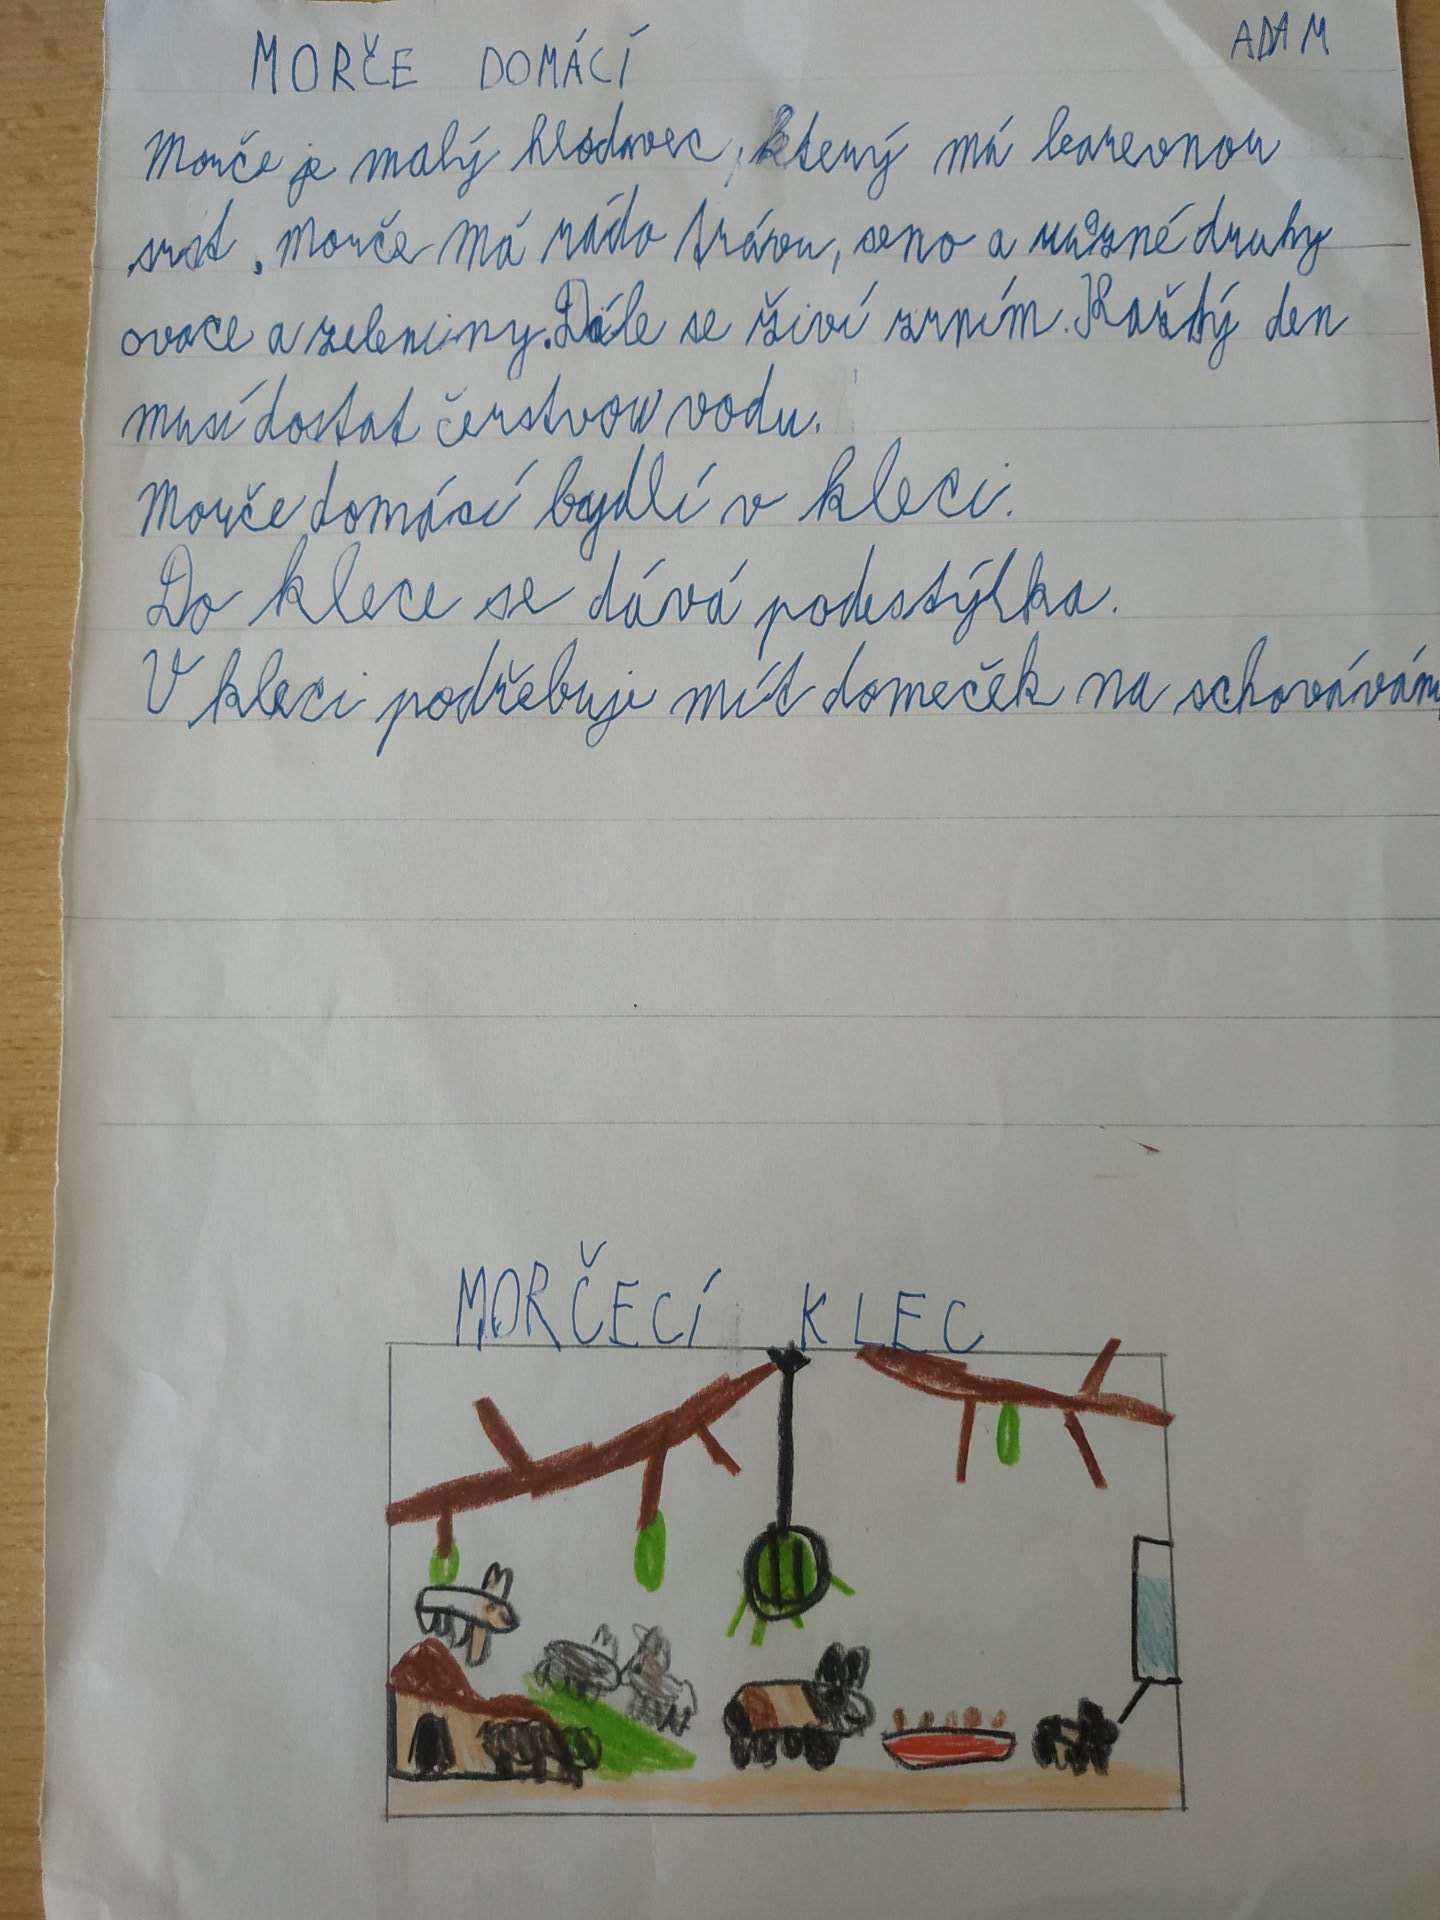 MORČE DOMÁCÍ
ADAM
Morče je malý hlodavec, který má barevnou
srst. Morče má rádo trávu, seno a různé druhy
ovoce a zeleniny. Dále se živí zrním. Každý den
musí dostat čerstvou vodu.
Morče domácí bydlí v kleci.
Do klece se dává podestýlka.
V kleci podřebuje mít domeček na schovávání
MORČECÍ KLEC